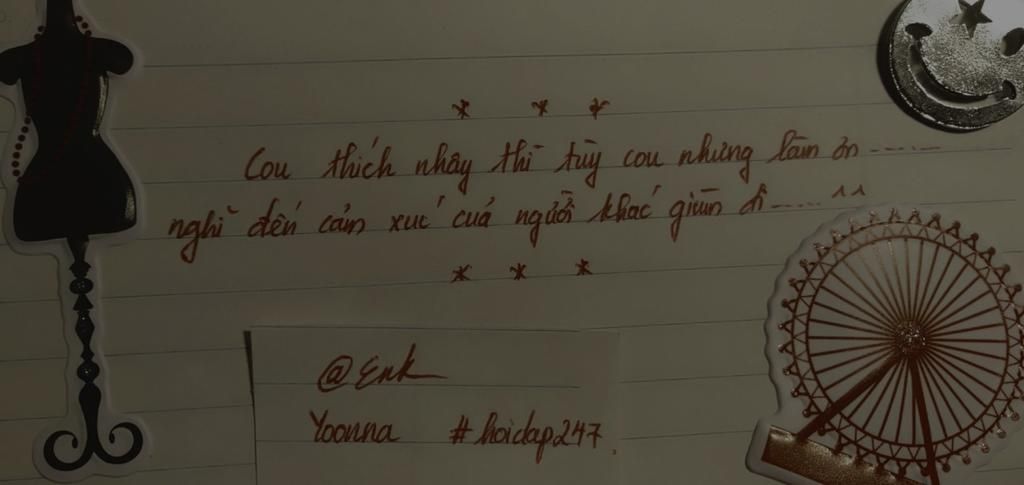 * * *
Cou thích nhây thì tùy cou nhưng làm ơn -----
nghĩ đến cảm xúc của người khác giùm đi ----- ^^
* * *
@Enk
Yoonna #hoidap247.